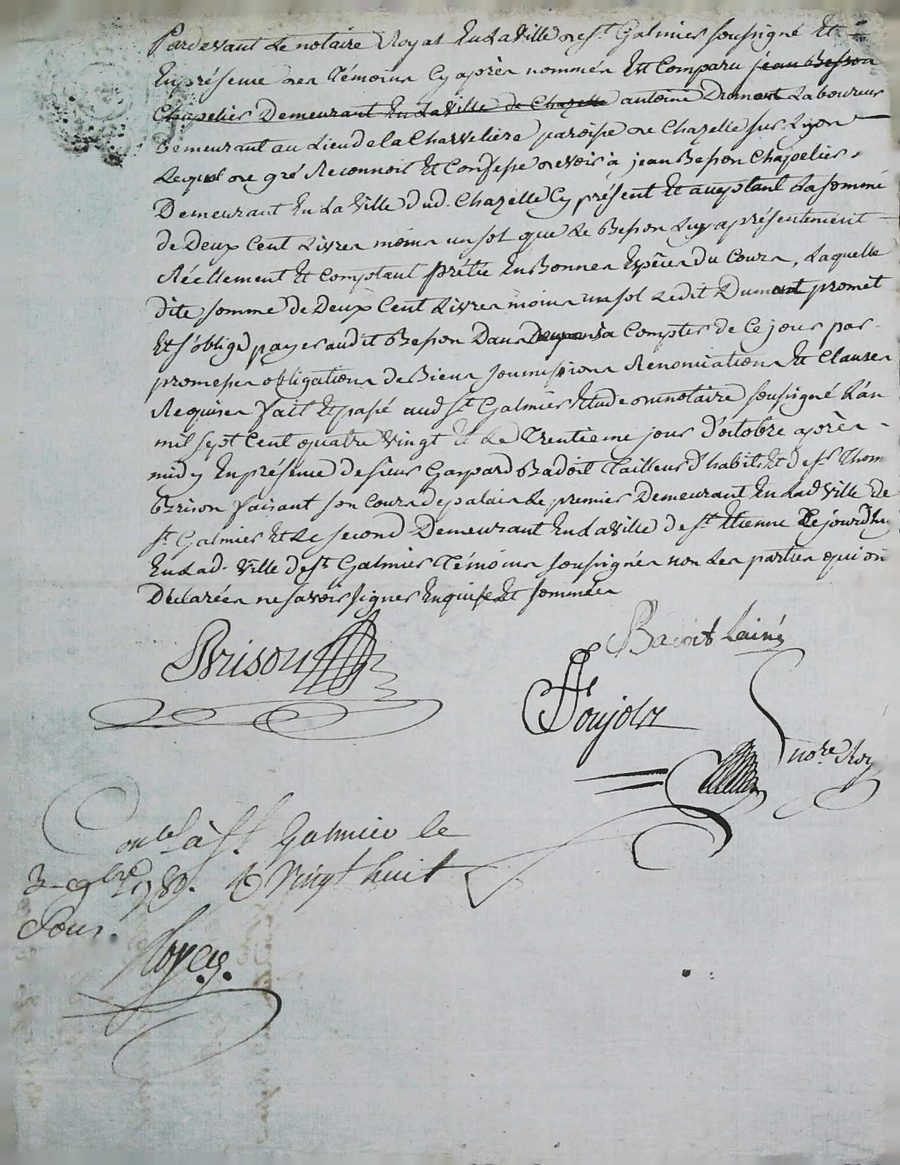 Pardevant Le notaire Royal En La Ville de St Galmier soussigné Et
En présence des Témoins Cy après nommés Est Comparu jean Besson
Chapelier Demeurant En La Ville de Chazelle antoine Dumont Laboureur
Demeurant au Lieu de la Charvelière paroisse de Chazelle sur Lyon
Lequel de gré Reconnoit Et Confesse devoir à jean Besson Chapelier
Demeurant En La Ville dud. Chazelle Cy présent Et acceptant La somme
de Deux Cent Livres moins un sol que Le Besson Luy a présentement
Réellement Et Comptant prétté En Bonnes Espèces du Cours, Laquelle
dite somme de Deux Cent Livres moins un sol Ledit Dumont promet
Et s'oblige payer audit Besson Dans a Compter de Ce jour par
promesses obligations de Biens soumissions Renonciations Et Clauses
Requises fait Et passé aud St Galmier Etude du notaire soussigné L'an
mil sept Cent quatre Vingt Et Le Trentieme jour d'octobre après
midy En présence de sieur Gaspard Badoit Tailleur d'habits Et de sr Thom
Brison faisant son Cours de palais Le premier Demeurant En Lad Ville de
St Galmier Et Le second Demeurant En La Ville de St Etienne Cejourd'huy
En Lad. Ville de St Galmier Témoins soussignés non Les parties qui ont
Déclarées ne savoir signer Enquises Et sommées
Badoit Lainé
Brison
nore Roy
Conlé à St Galmier le
3 9bre 1780. R Vingt huit
sous.